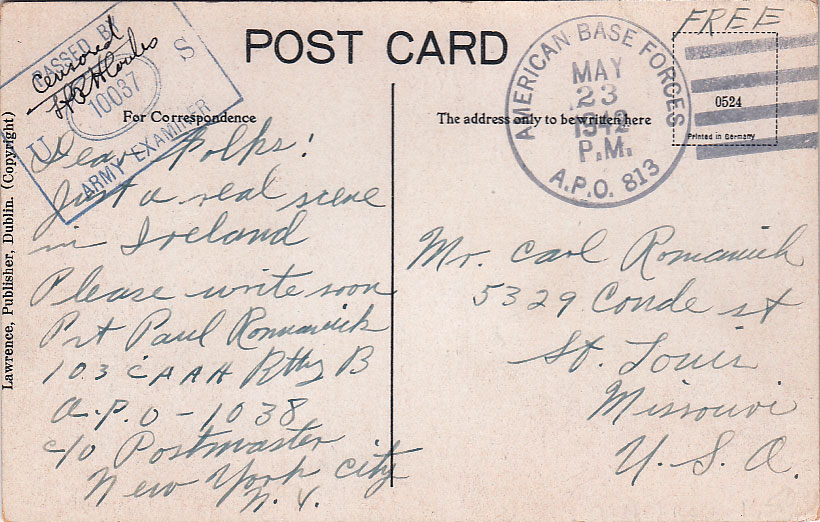 POST CARD
FREE
PASSED BY
U S
10037
ARMY EXAMINER
Censored
AMERICAN BASE FORCES
MAY
23
1942
P.M.
A.P.O. 813
0524
Printed in Germany
For Correspondence
The address only to be written here
Lawrence, Publisher, Dublin. (Copyright)
Dear Folks!
Just a real scene
in Ireland
Please write soon
Pvt Paul Romanick
103 CAAA Btry B
A.P.O - 1038
c/o Postmaster
New York City
N.Y.
Mr. Carl Romanick
5329 Conde st
St. Louis
Missouri
U.S.A.